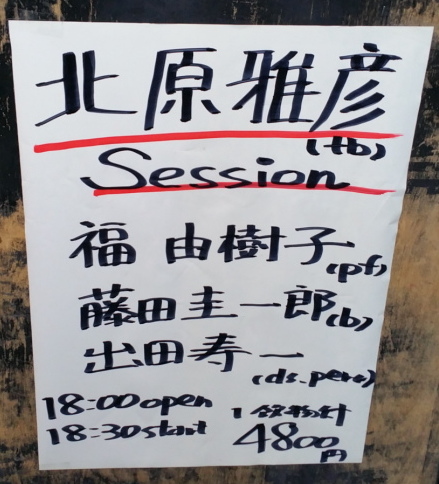 北原雅彦
(tb)
Session
福 由樹子
(pf)
藤田圭一郎
(b)
出田寿一
(ds.perc)
18:00 open
18:30 start
4800
円